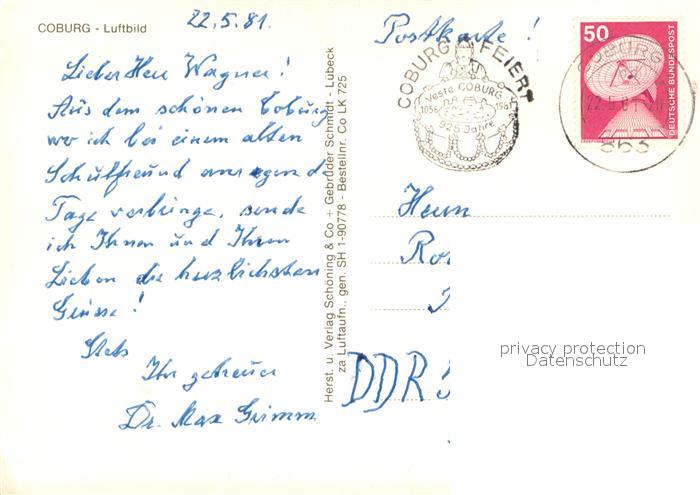 COBURG - Luftbild
22.5.81.
Lieber Herr Wagner!
Aus dem schönen Coburg
wo ich bei einem alten
Schulfreund anregend
Tage verbringe, sende
ich Ihnen und Ihren
Lieben die herzlichsten
Grüsse!
Stets
Ihr getreuer
Dr. Max Grimm
Herst. u. Verlag Schöning & Co + Gebrüder Schmidt - Lübeck
za Luftaufn., gen. SH 1-90778 - Bestellnr. Co LK 725
Postkarte!
COBURG FEIERT
Veste COBURG
1056 1981
925 Jahre
50
DEUTSCHE BUNDESPOST
COBURG
22.5.81
863
Herrn
Ro
DDR
privacy protection
Datenschutz